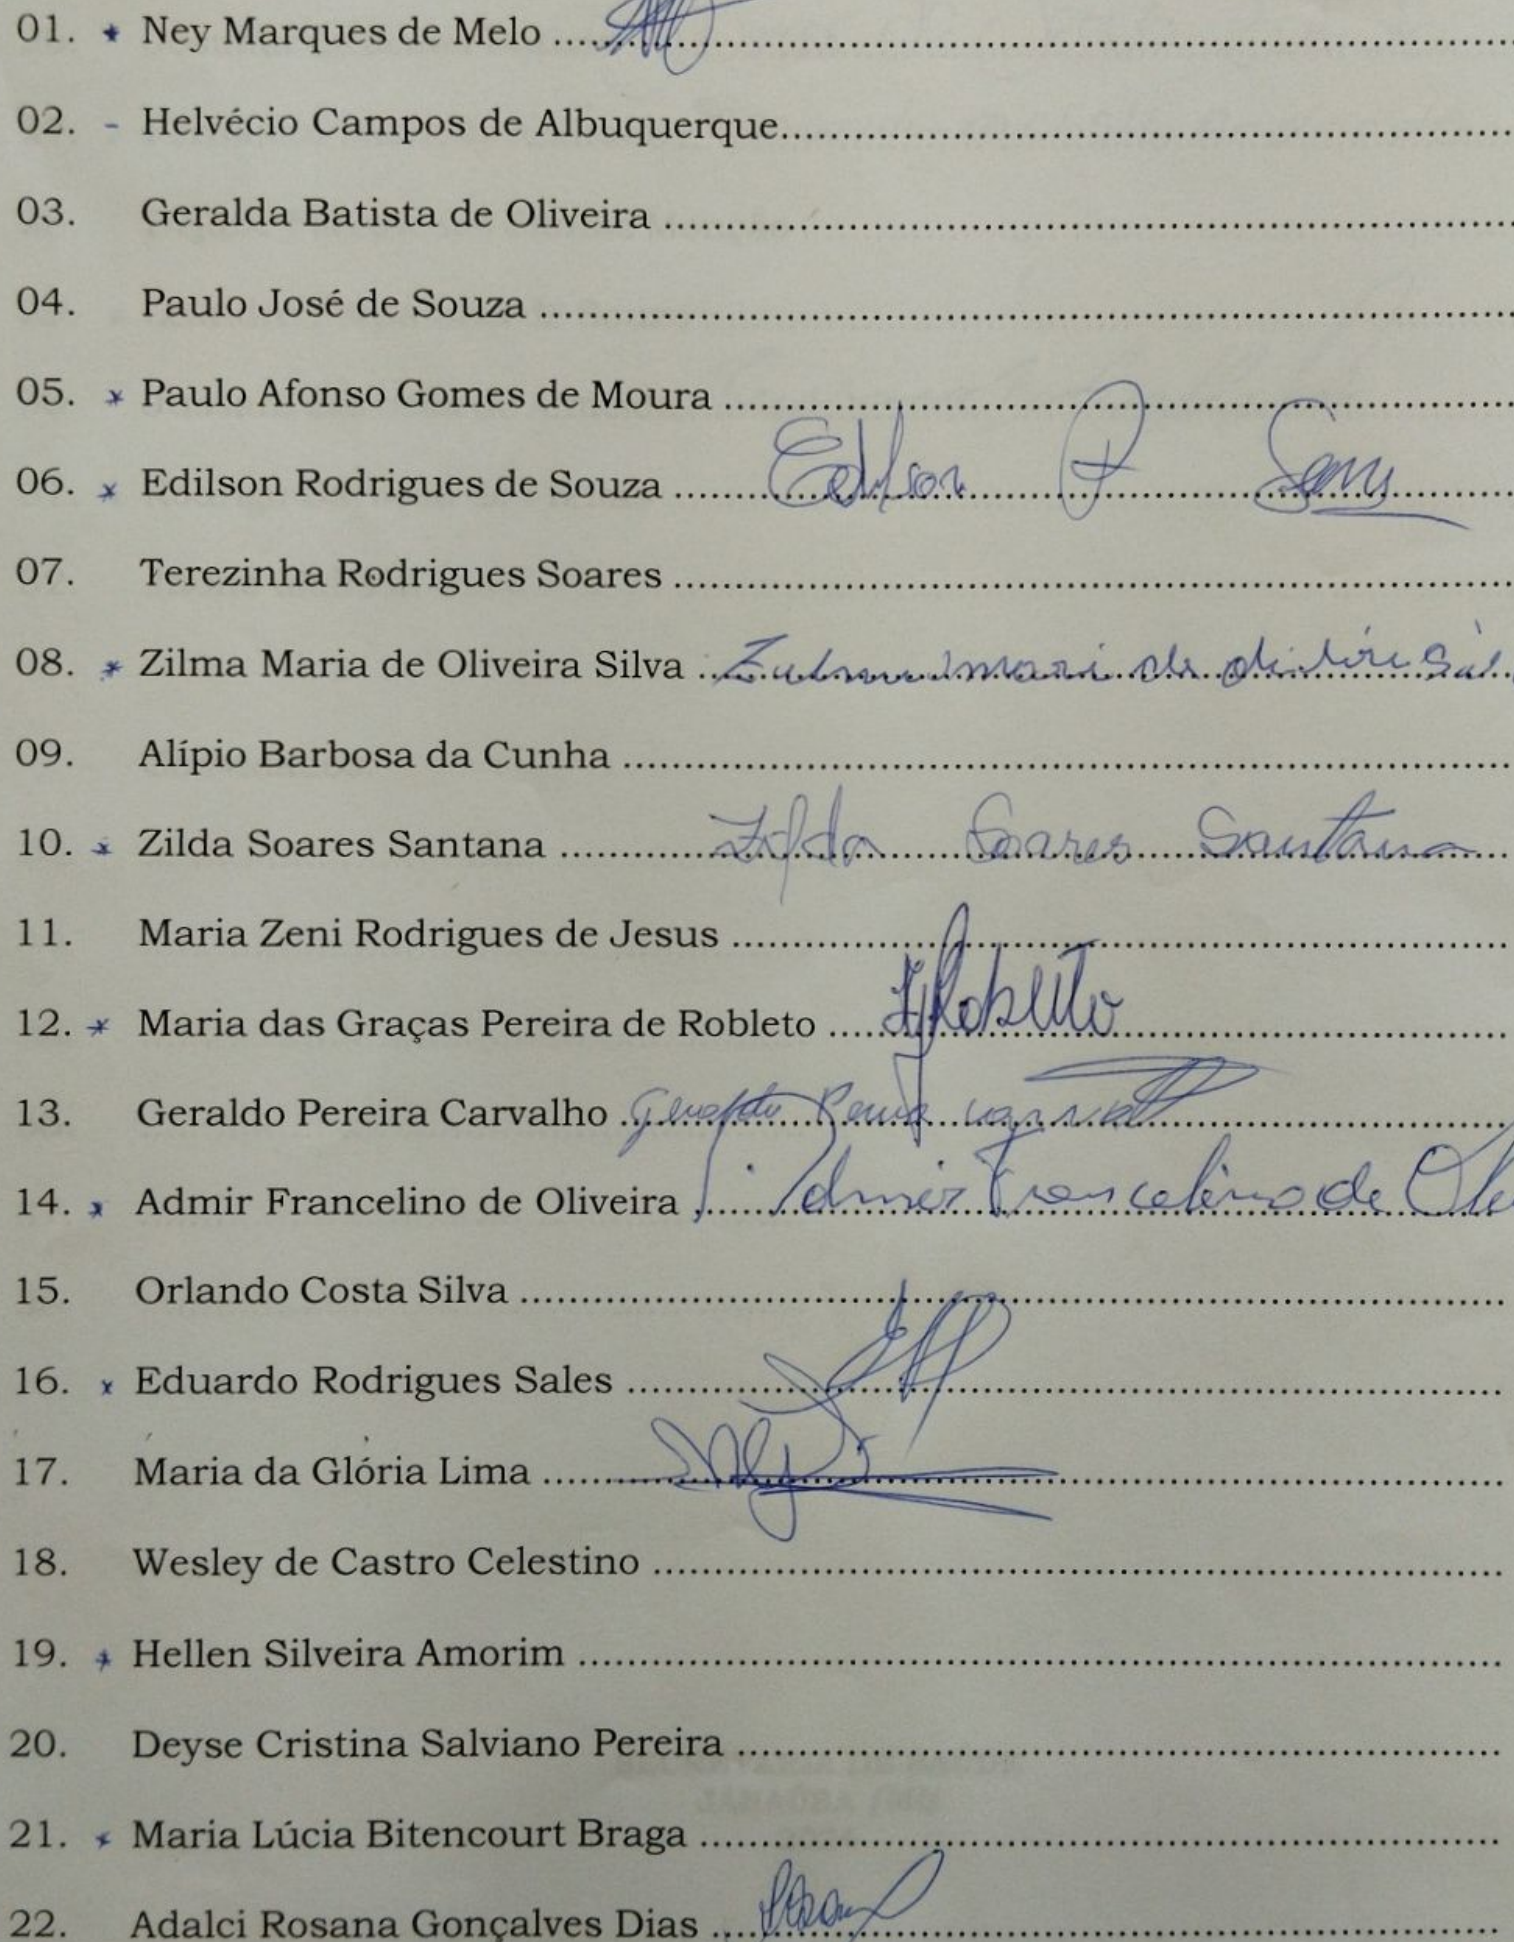 01. * Ney Marques de Melo ....................
02. - Helvécio Campos de Albuquerque....................
03. Geralda Batista de Oliveira ....................
04. Paulo José de Souza ....................
05. x Paulo Afonso Gomes de Moura ....................
06. x Edilson Rodrigues de Souza .................... Edilson R
07. Terezinha Rodrigues Soares ....................
08. * Zilma Maria de Oliveira Silva ....................
09. Alípio Barbosa da Cunha ....................
10. x Zilda Soares Santana .................... Zilda Soares Santana
11. Maria Zeni Rodrigues de Jesus ....................
12. * Maria das Graças Pereira de Robleto .................... Robleto
13. Geraldo Pereira Carvalho ....................
14. x Admir Francelino de Oliveira .................... Admir Francelino de
15. Orlando Costa Silva ....................
16. x Eduardo Rodrigues Sales ....................
17. Maria da Glória Lima ....................
18. Wesley de Castro Celestino ....................
19. * Hellen Silveira Amorim ....................
20. Deyse Cristina Salviano Pereira ....................
21. * Maria Lúcia Bitencourt Braga ....................
22. Adalci Rosana Gonçalves Dias ....................